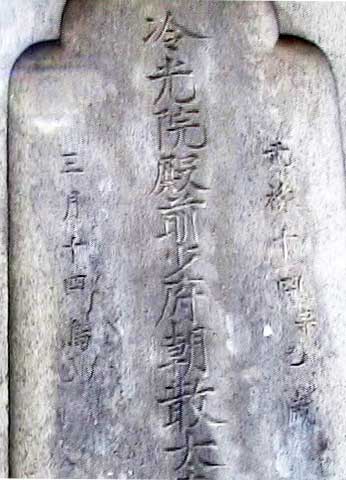 元禄十四辛巳
冷光院殿前少府朝散大
三月十四烏